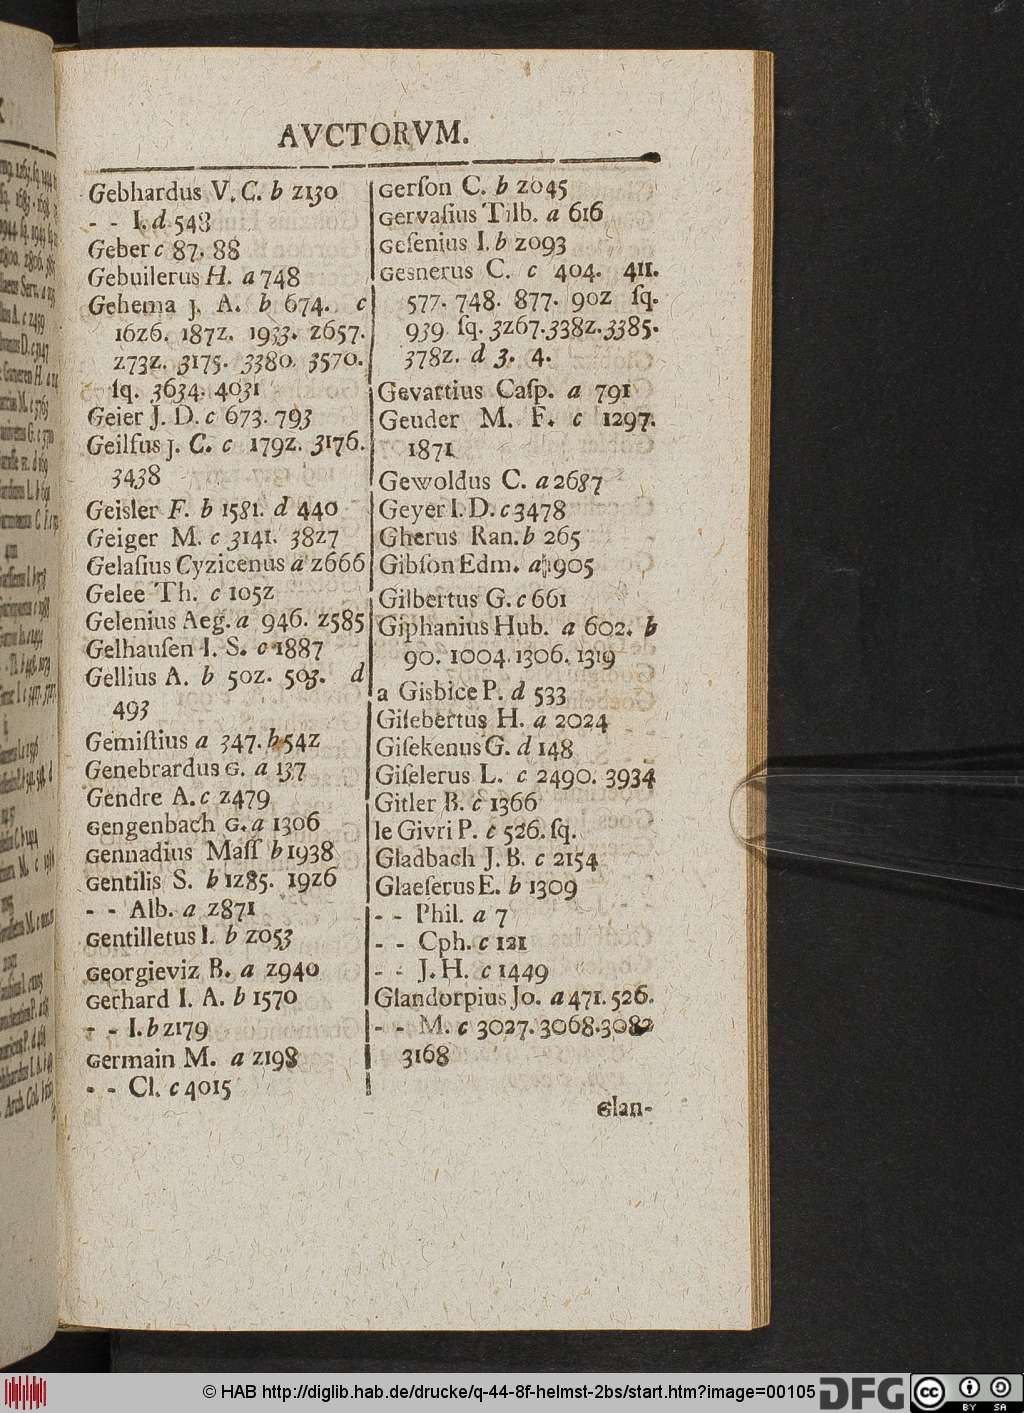 AVCTORVM.
Gebhardus V. C. b 2130
- - I. d 548
Geber c 87. 88
Gebuilerus H. a 748
Gehema J. A. b 674. c
1626. 1872. 1933. 2657.
2732. 3175. 3380. 3570.
ſq. 3634. 4031
Geier J. D. c 673. 793
Geilfus J. C. c 1792. 3176.
3438
Geisler F. b 1581. d 440
Geiger M. c 3141. 3827
Gelaſius Cyzicenus a 2666
Gelee Th. c 1052
Gelenius Aeg. a 946. 2585
Gelhauſen I. S. c 1887
Gellius A. b 502. 503. d
493
Gemiſtius a 347. b 542
Genebrardus G. a 137
Gendre A. c 2479
Gengenbach G. a 1306
Gennadius Maſſ b 1938
Gentilis S. b 1285. 1926
- - Alb. a 2871
Gentilletus I. b 2053
Georgieviz B. a 2940
Gerhard I. A. b 1570
- - I. b 2179
Germain M. a 2198
- - Cl. c 4015
Gerſon C. b 2045
Gervaſius Tilb. a 616
Geſenius I. b 2093
Gesnerus C. c 404. 411.
577. 748. 877. 902 ſq.
939 ſq. 3267. 3382. 3385.
3782. d 3. 4.
Gevartius Caſp. a 791
Geuder M. F. c 1297.
1871
Gewoldus C. a 2687
Geyer I. D. c 3478
Gherus Ran. b 265
Gibſon Edm. a 1905
Gilbertus G. c 661
Giphanius Hub. a 602. b
90. 1004. 1306. 1319
a Gisbice P. d 533
Giſebertus H. a 2024
Giſekenus G. d 148
Giſelerus L. c 2490. 3934
Gitler B. c 1366
le Givri P. c 526. ſq.
Gladbach J. B. c 2154
Glaeſerus E. b 1309
- - Phil. a 7
- - Cph. c 121
- - J. H. c 1449
Glandorpius Jo. a 471. 526.
- - M. c 3027. 3068. 3082
3168
Glan-
© HAB http://diglib.hab.de/drucke/q-44-8f-helmst-2bs/start.htm?image=00105
DFG
cc BY SA